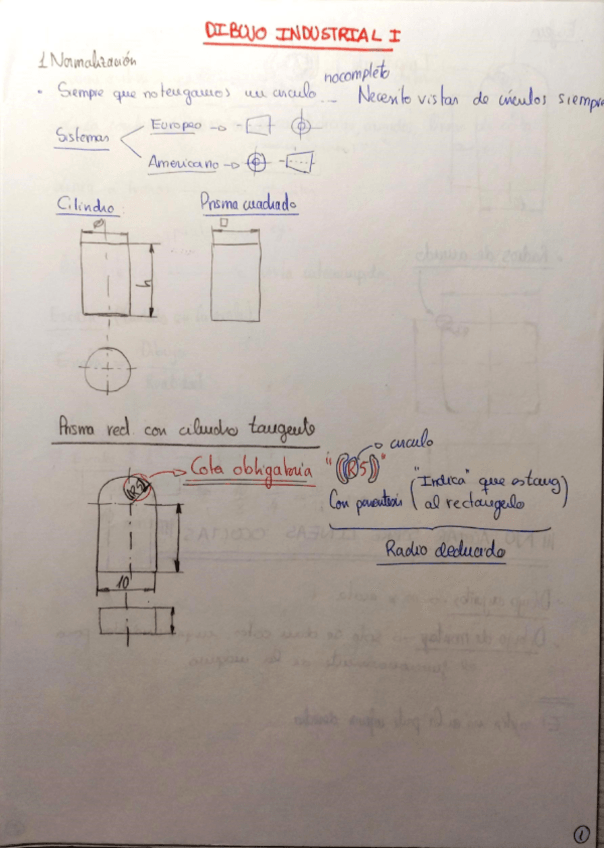 DIBUJO INDUSTRIAL I
1. Normalización
• Siempre que no tengamos un círculo no completo ... Necesito vistas de círculos siempre
Sistemas
Europeo
Americano
Cilindro
Prisma cuadrado
Ø
□
h
Prisma rect. con cilindro tangente
(R5)
Cota obligatoria
"(R5)"
círculo
Con parentesis ("Indica" que es tang)
al rectangulo
Radio deducido
10
1